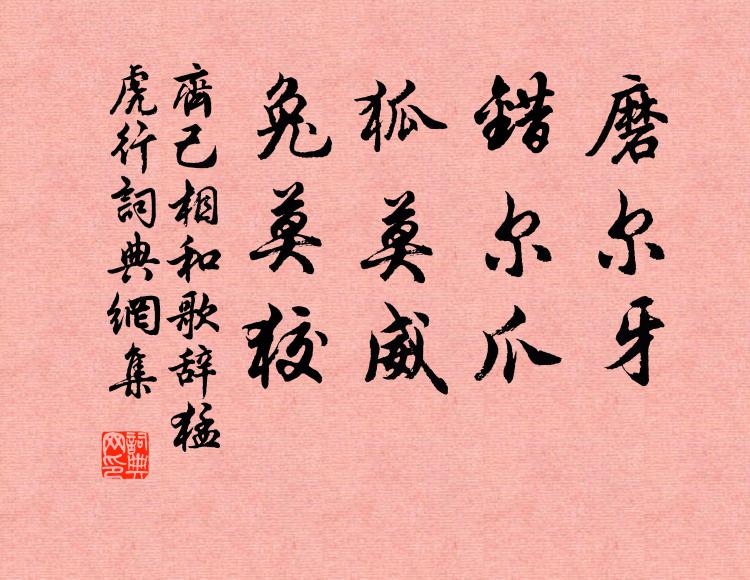 磨尔牙
错尔爪
狐莫威
兔莫狡
齊己相和歌辞猛
虎行詞典網集
詞典网印